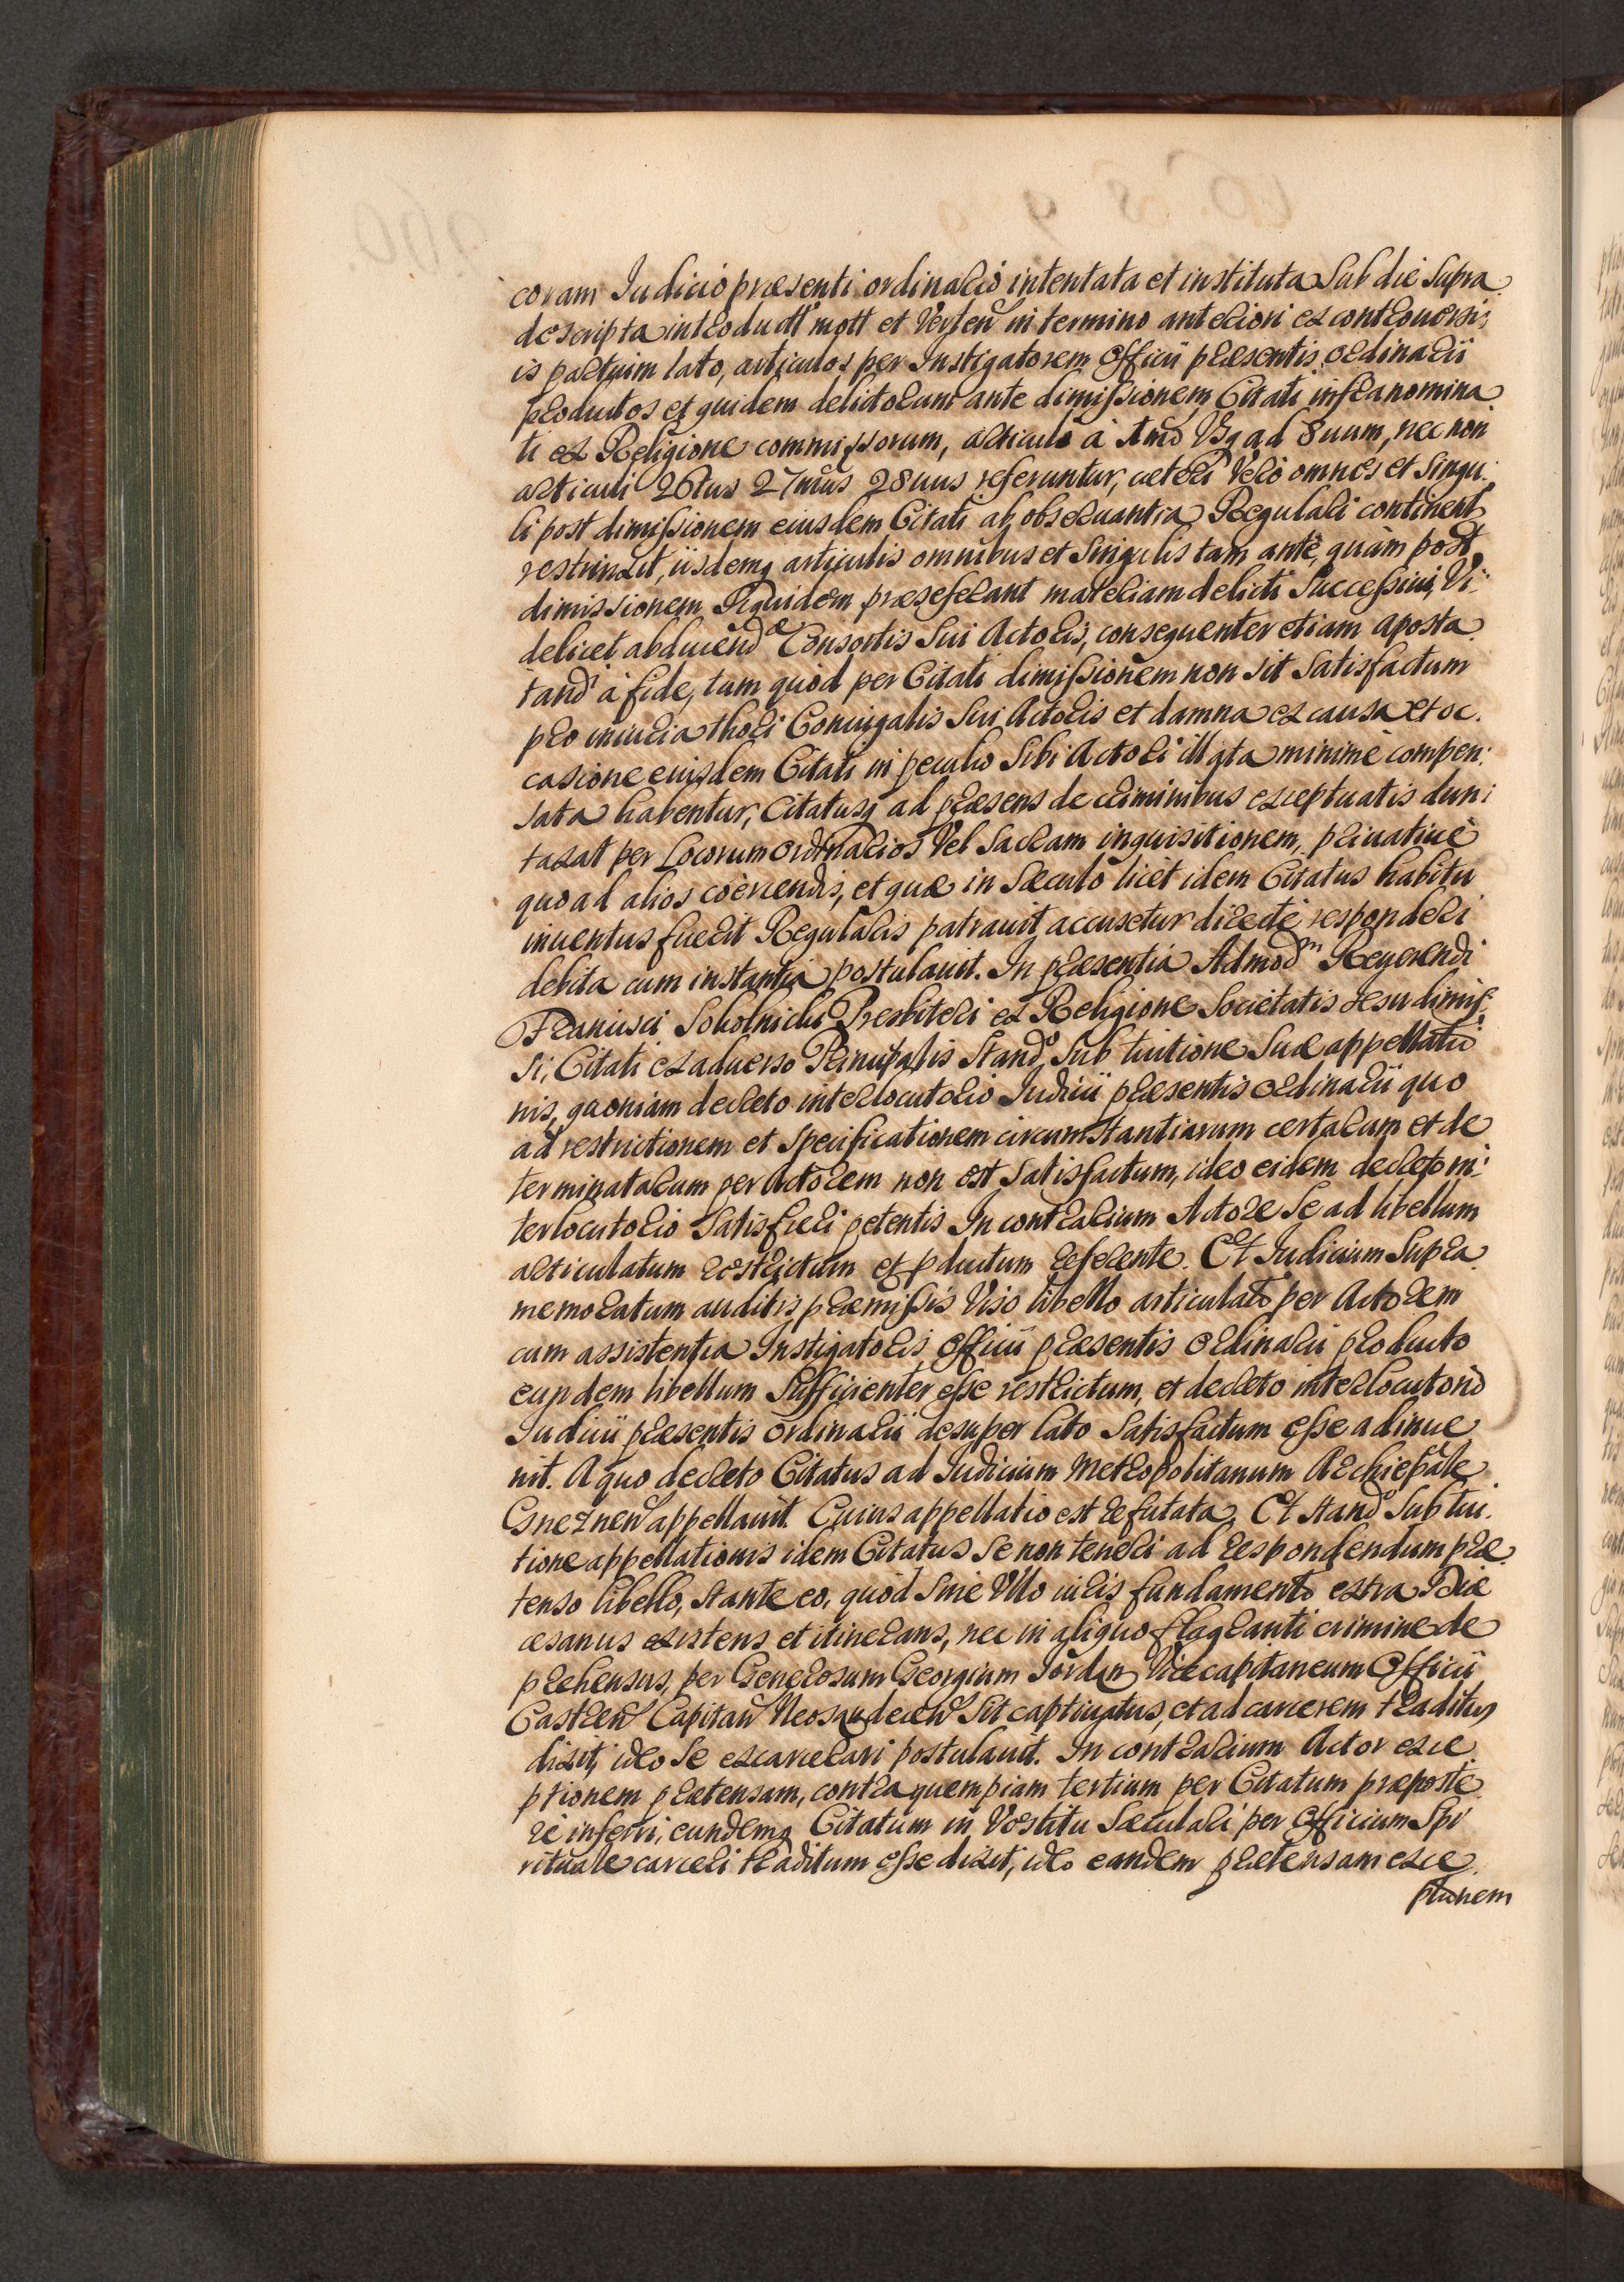 coram Iudicio præsenti ordinario intentata et instituta Sub die Supra
descripta introductt mott et Verten in termino anteriori ex controuersi;
is partium lato, articulos per Instigatorem Officii præsentis ordinarii
productos et quidem delictorum ante dimissionem Citati infranomina
ti ex Religione commissorum, articulo à 1mo ad 8uum, nec non
articuli 26tus 27mus 28uus referuntur, cæteri Vero omnes et Singu:
li post dimissionem eiusdem Citati ab obseruantia Regulari continent
restrinxit, iisdemq articulis omnibus et Singulis tam ante, quàm post
dimissionem Siquidem præseferant materiam delicti Successiui, Vi:
delicet abducendæ Consortis Sui Actoris, consequenter etiam aposta
tandi à fide, tum quòd per Citati dimissionem non sit Satisfactum
pro iniuria thori Coniugalis Sui Actoris et damna ex causa et oc.
casione eiusdem Citati in peculio Sibi Actori illata minimè compen:
sata habentur, Citatusq ad præsens de criminibus exceptuatis dun:
taxat per Locorum Ordinarios Vel Sacram inquisitionem, priuatiuè
quoad alios coèrcendis, et quæ in Sæculo licèt idem Citatus habitu
inuentus fuerit Regularis patrauit accusetur directè responderi
debita cum instantia postulauit. In præsentia Admodm Reuerendi
Francisci Sokolnicki Presbiteri ex Religione Societatis Iesu dimis
si, Citati ex aduerso Principalis Stando Sub tuitione Suæ appellatio
nis, quoniam decreto interlocutorio Iudicii præsentis ordinarii quo
ad restrictionem et Specificationem circumstantiarum certarum et de
terminatarum per Actorem non est Satisfactum, ideo eidem decreto in:
terlocutorio Satisfieri petentis In contrarium Actore Se ad libellum
articulatum restrictum et pductum referente. Et Iudicium Supra
memoratum auditis præmissis Viso libello articulato per Actorem
cum assistentia Instigatoris Officii præsentis Ordinarii producto
eundem libellum Sufficienter esse restrictum, et decreto interlocutorio
Iudicii præsentis ordinarii desuper lato Satisfactum esse adinue
nit. A quo decreto Citatus ad Iudicium Metropolitanum Archiepâle
Gneznen appellauit. Cuius appellatio est refutata. Et stando Sub tui.
tione appellationis idem Citatus Se non teneri ad respondendum præ
tenso libello, stante eo, quòd Sine Vllo iuris fundamento extra Diæ
cæsanus existens et itinerans, nec in aliquo flagranti crimine de
prehensus, per Generosum Georgium Iordan Vicecapitaneum Officii
Castren Capitan Neosandecen Sit captiuatus, et ad carcerem traditus
dixit, ideo Se excarcerari postulauit. In contrarium Actor exce
ptionem prætensam, contra quempiam tertium per Citatum præpostè
rè inferri, eundemq Citatum in Vestitu Sæculari per Officium Spi
rituale carceri traditum esse dixit, ideo eandem prætensam exce
ptionem